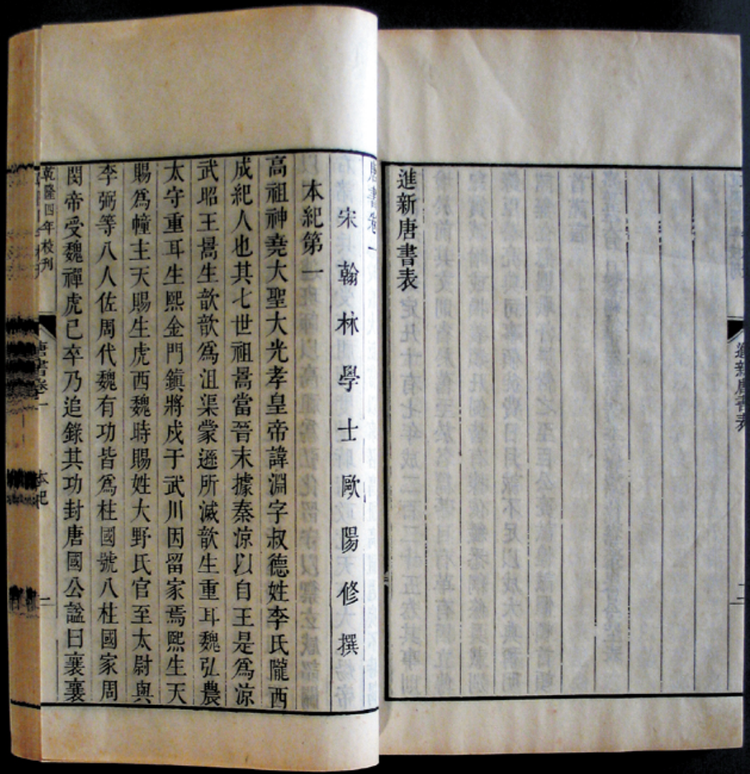 進新唐書表
進新唐書表
二
唐書卷一
宋翰林學士歐陽修撰
本紀第一
高祖神堯大聖大光孝皇帝諱淵字叔德姓李氏隴西
成紀人也其七世祖暠當晉末據秦涼以自王是為涼
武昭王暠生歆歆為沮渠蒙遜所滅歆生重耳魏弘農
太守重耳生熙金門鎮將戍于武川因留家焉熙生天
賜為幢主天賜生虎西魏時賜姓大野氏官至太尉與
李弼等八人佐周代魏有功皆為柱國號八柱國家周
閔帝受魏禪虎已卒乃追錄其功封唐國公諡曰襄襄
乾隆四年校刊
唐書卷一
本紀
一